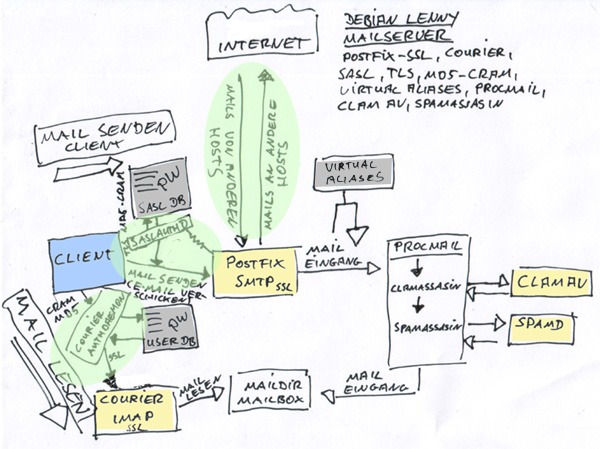 INTERNET
DEBIAN LENNY
MAILSERVER
POSTFIX-SSL, COURIER,
SASL, TLS, MD5-CRAM,
VIRTUAL ALIASES, PROCMAIL,
CLAM AV, SPAMASSASIN
MAIL SENDEN
CLIENT
MAILS VON ANDEREN
HOSTS
MAILS AN ANDERE
HOSTS
PW
SASL DB
MD5-CRAM
SASLAUTHD
VIRTUAL
ALIASES
CLIENT
MAIL SENDEN
(E-MAIL VER-
SCHICKEN)
POSTFIX
SMTP SSL
MAIL
EINGANG
PROCMAIL
CLAMASSASIN
SPAMASSASIN
CLAMAV
SPAMD
CRAM
MD5
COURIER
AUTHDAEMON
SSL
PW
USER DB
MAIL LESEN
COURIER
IMAP
SSL
MAIL
LESEN
MAILDIR
MAILBOX
MAIL
EINGANG